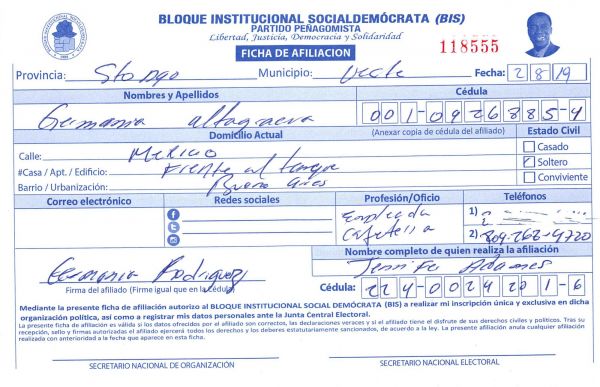 BLOQUE INSTITUCIONAL SOCIALDEMÓCRATA (BIS)
PARTIDO PEÑAGOMISTA
Libertad, Justicia, Democracia y Solidaridad
FICHA DE AFILIACION
118555
Provincia: Sto Dgo Municipio: Oeste Fecha: 2/8/19
Nombres y Apellidos Cédula
Germania altagracia 001-0926885-4
Domicilio Actual (Anexar copia de cédula del afiliado) Estado Civil
Calle: Mexico
#Casa / Apt. / Edificio: Frente al tanque
Barrio / Urbanización: Bueno Aires
Casado
Soltero
Conviviente
Correo electrónico Redes sociales Profesión/Oficio Teléfonos
Empleada
Cafeteria
1)
2) 809-262-9720
Nombre completo de quien realiza la afiliación
Jennifer Adames
Germania Rodriguez
Firma del afiliado (Firme igual que en la Cédula)
Cédula: 224-0024201-6
Mediante la presente ficha de afiliación autorizo al BLOQUE INSTITUCIONAL SOCIAL DEMÓCRATA (BIS) a realizar mi inscripción única y exclusiva en dicha
organización política, así como a registrar mis datos personales ante la Junta Central Electoral.
La presente ficha de afiliación es válida si los datos ofrecidos por el afiliado son correctos, las declaraciones veraces y si el afiliado tiene el disfrute de sus derechos civiles y políticos. Tras su
recepción, sello y firmas autorizadas el afiliado ejercerá todos los derechos y los deberes estatutariamente sancionados, de acuerdo a la ley. La presente afiliación anula cualquier afiliación
realizada con anterioridad a la fecha que aparece en esta ficha.
SECRETARIO NACIONAL DE ORGANIZACIÓN SECRETARIO NACIONAL ELECTORAL